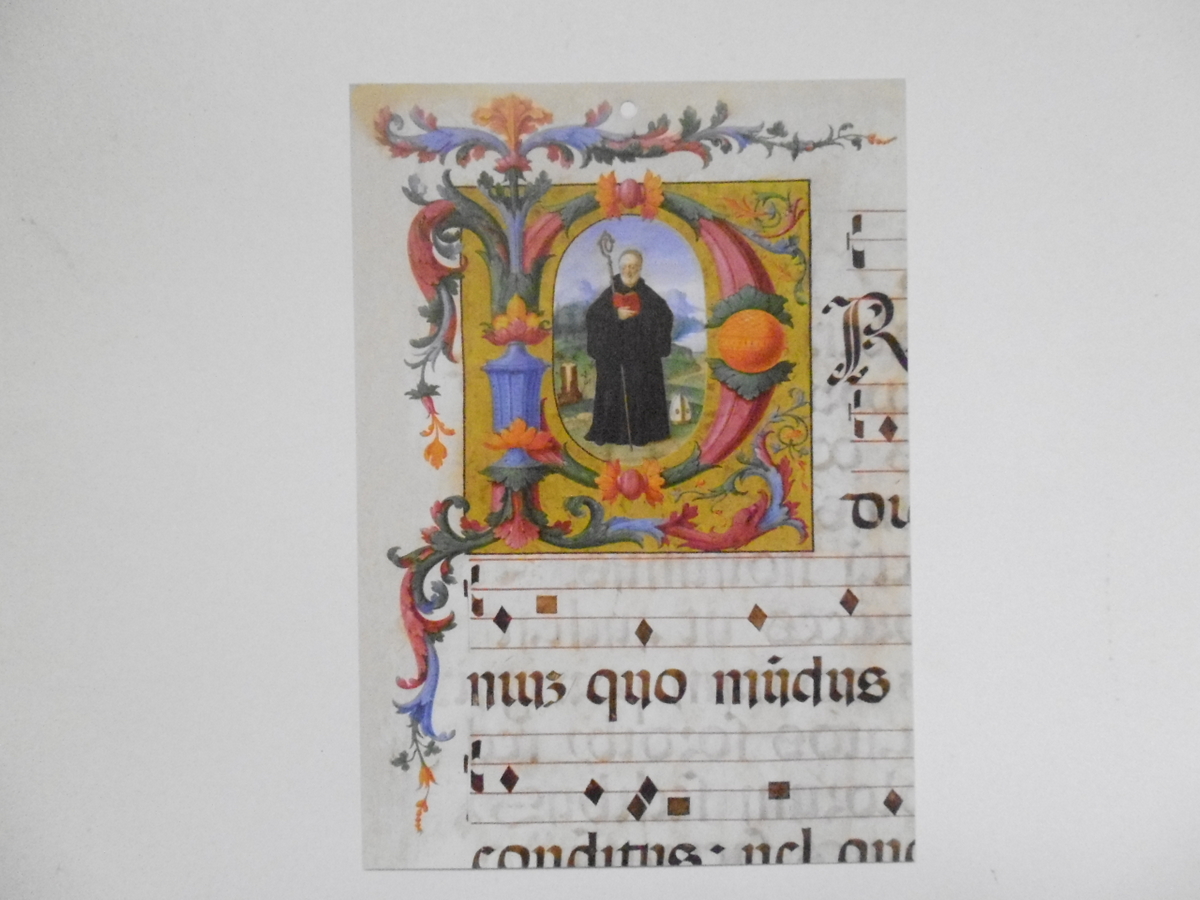 P R
di
niuz quo mūdus
conditus: vel quo